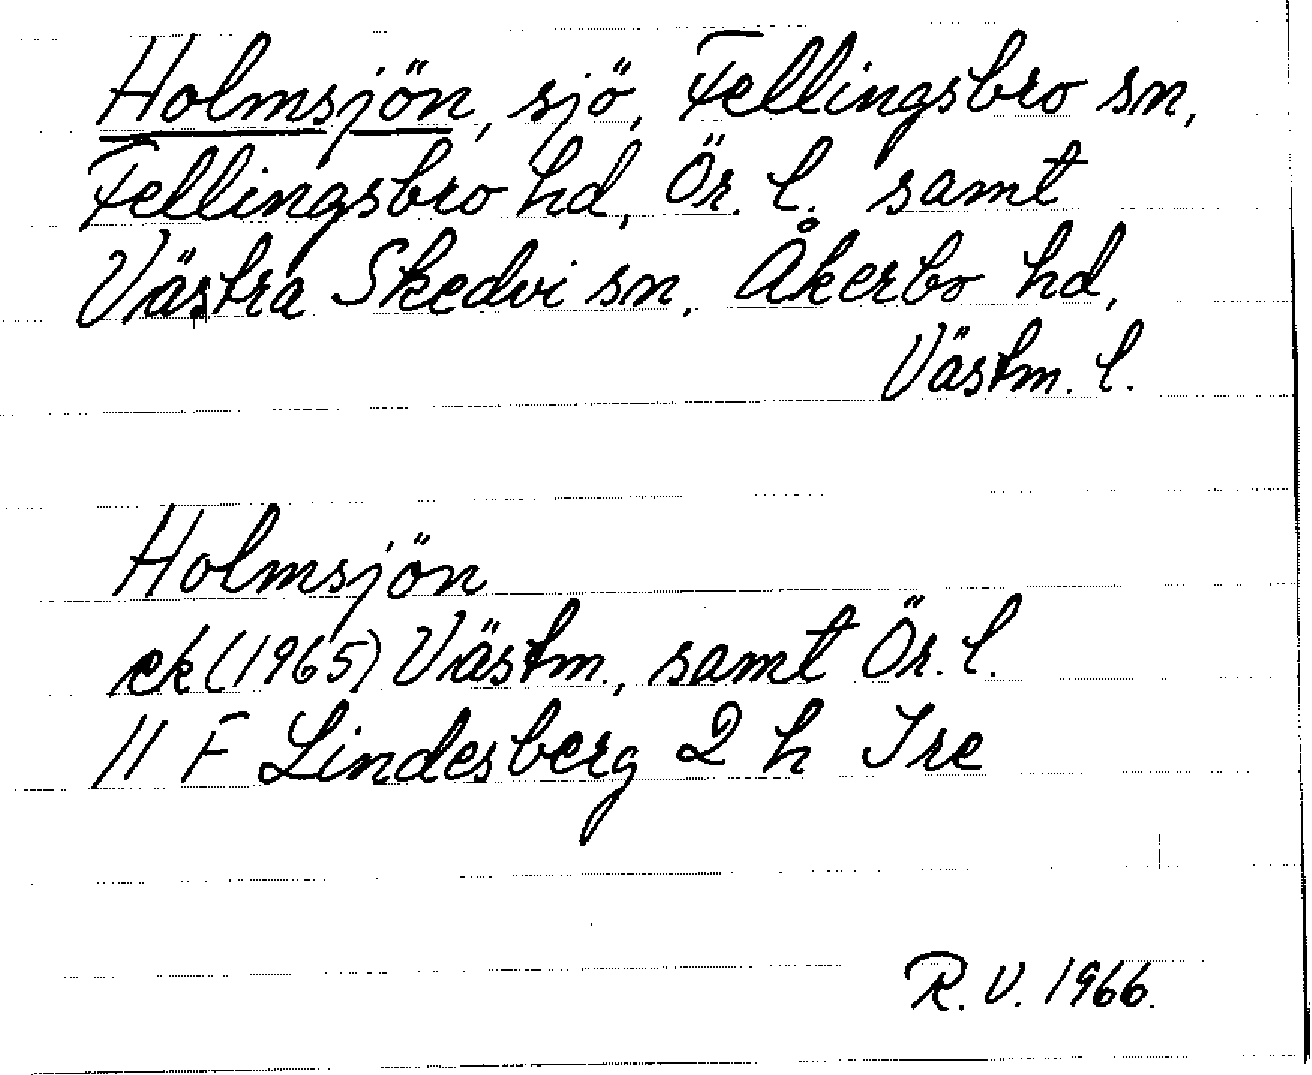 Holmsjön, sjö, Fellingsbro sn,
Fellingsbro hd, Ör. l. samt
Västra Skedvi sn, Åkerbo hd,
Västm. l.
Holmsjön
ek (1965) Västm., samt Ör. l.
11 F Lindesberg 2 h Tre
R.V. 1966.